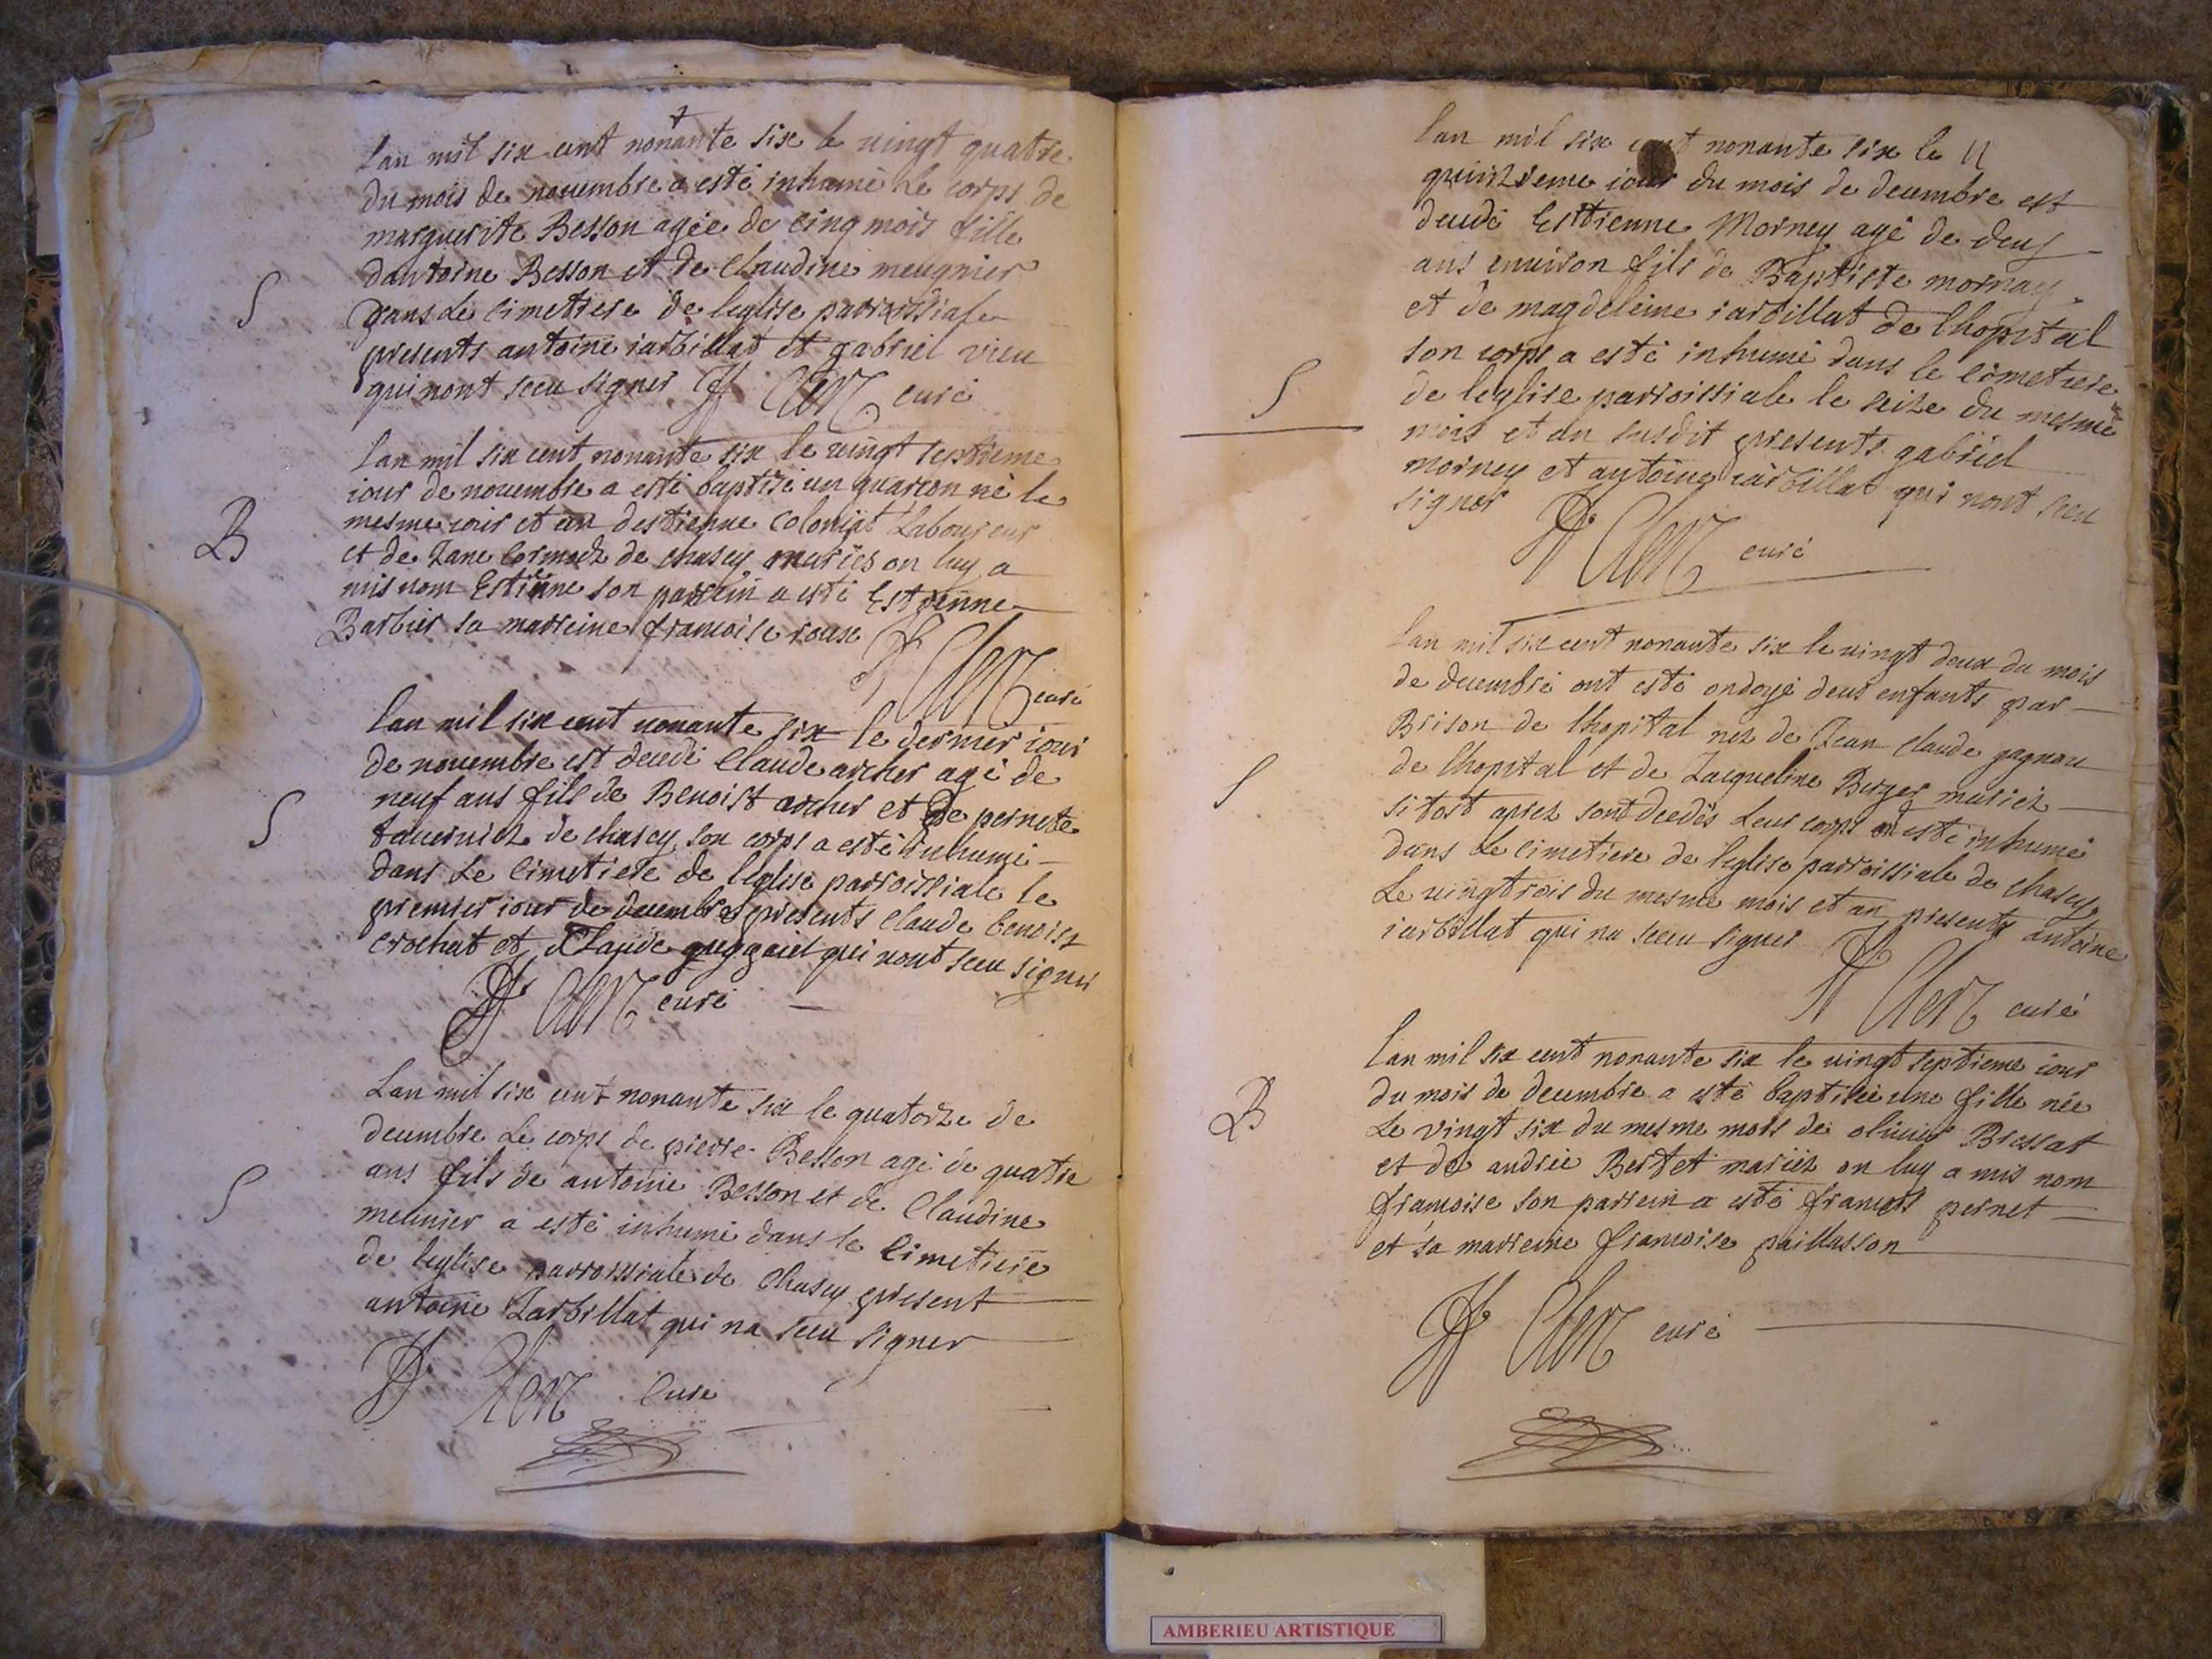 Lan mil six cent nonante six le vingt quatre
du mois de novembre a esté inhumé Le corps de
marguerite Besson agée de cinq mois fille
dantoine Besson et de Claudine meugnier
S
dans Le cimetiere de leglise parroissiale
presents antoine iarbillat et gabriel vieu
qui nont sceu signer Clerc curé
Lan mil six cent nonante six le vingt septieme
iour de novembre a esté baptisé un guarcon né le
B
mesme iour et an destienne Laboureur
et de Jane de chasey mariés on luy a
mis nom Estienne son parrein a esté Estienne
Barbier sa marreine francoise roux
Clerc curé
Lan mil six cent nonante six le dernier iour
de novembre est decedé Claude archer agé de
S
neuf ans fils de Benoist archer et de pernete
de chasey son corps a esté inhumé
dans Le cimetiere de leglise parroissiale le
premier iour de decembre presents Claude benoist
crochat et Claude qui nont sceu signer
Clerc curé
Lan mil six cent nonante six le quatorze de
decembre Le corps de pierre Besson agé de quatre
S
ans fils de antoine Besson et de Claudine
meunier a esté inhumé dans le cimetiere
de leglise parroissiale de Chasey present
antoine Jarbillat qui na sceu signer
Clerc Curé
Lan mil six cent nonante six le
quinzieme iour du mois de decembre est
decedé Estienne Morney agé de deux
ans environ fils de Baptiste mornay
et de magdeleine iarbillat de lhopital
S
son corps a esté inhumé dans le cimetiere
de leglise parroissiale le seize du mesme
mois et an susdit presents gabriel
morney et antoine iarbillat qui nont sceu
signer
Clerc curé
Lan mil six cent nonante six le vingt deux du mois
de decembre ont esté ondoyé deux enfants par
Brison de lhopital nez de Jean Claude gagneu
S
de lhopital et de Jacqueline Berger mariez
sitost aprez sont decedés Leur corps ont esté inhumé
dans Le cimetiere de leglise parroissiale de chasey
Le vingtrois du mesme mois et an presents antoine
iarbillat qui na sceu signer
Clerc curé
Lan mil six cent nonante six le vingt septieme iour
du mois de decembre a esté baptisée une fille née
B
Le vingt six du mesme mois de olivier Bressat
et de andrée Bertet mariéz on luy a mis nom
francoise son parrein a esté francois pernet
et sa marreine francoise paillasson
Clerc curé
AMBERIEU ARTISTIQUE